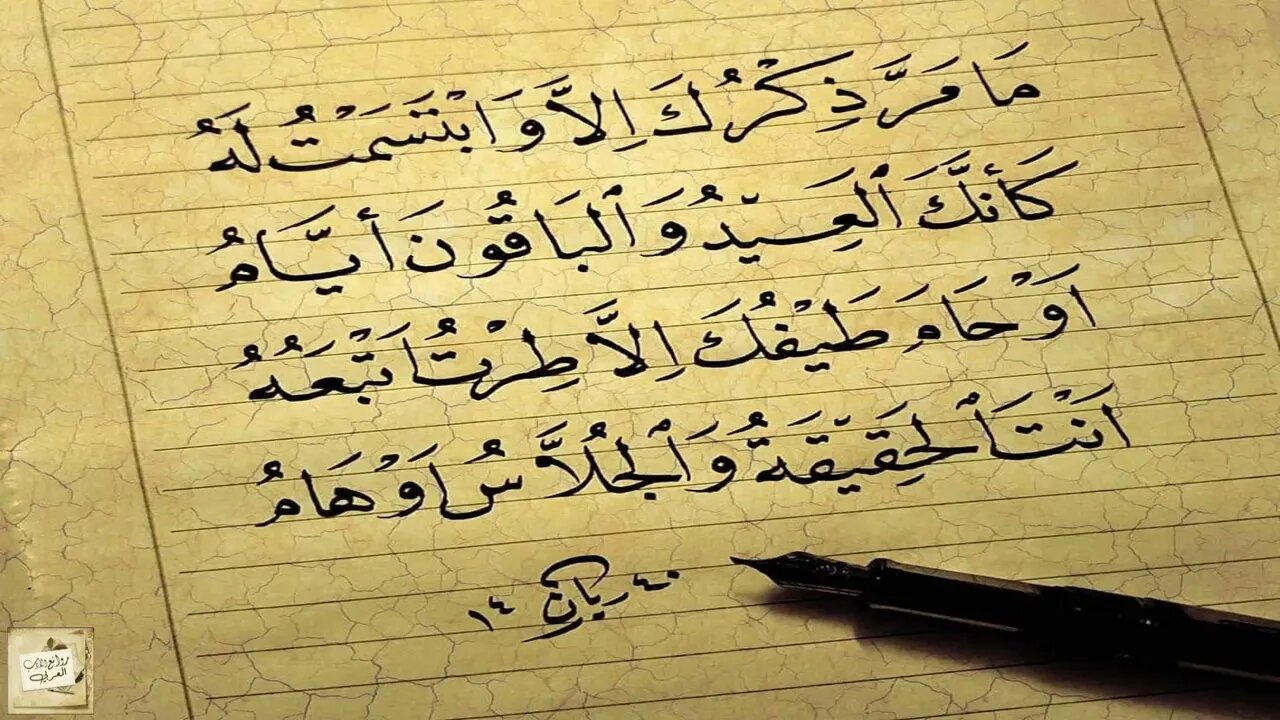 مَا مَرَّ ذِكْرُكَ إِلاَّ وَابْتَسَمْتُ لَهُ
كَأَنَّكَ ٱلْعِيدُ وَٱلبَاقُونَ أَيَّامُ
اَوْحَامَ طَيْفُكَ إِلاَّ طِرْتُ اَتْبَعُهُ
اَنْتَ ٱلْحَقِيقَةُ وَٱلْجُلاَّسُ اَوْهَامُ
١٤ ريان ٤٠
روائع الادب
العربي